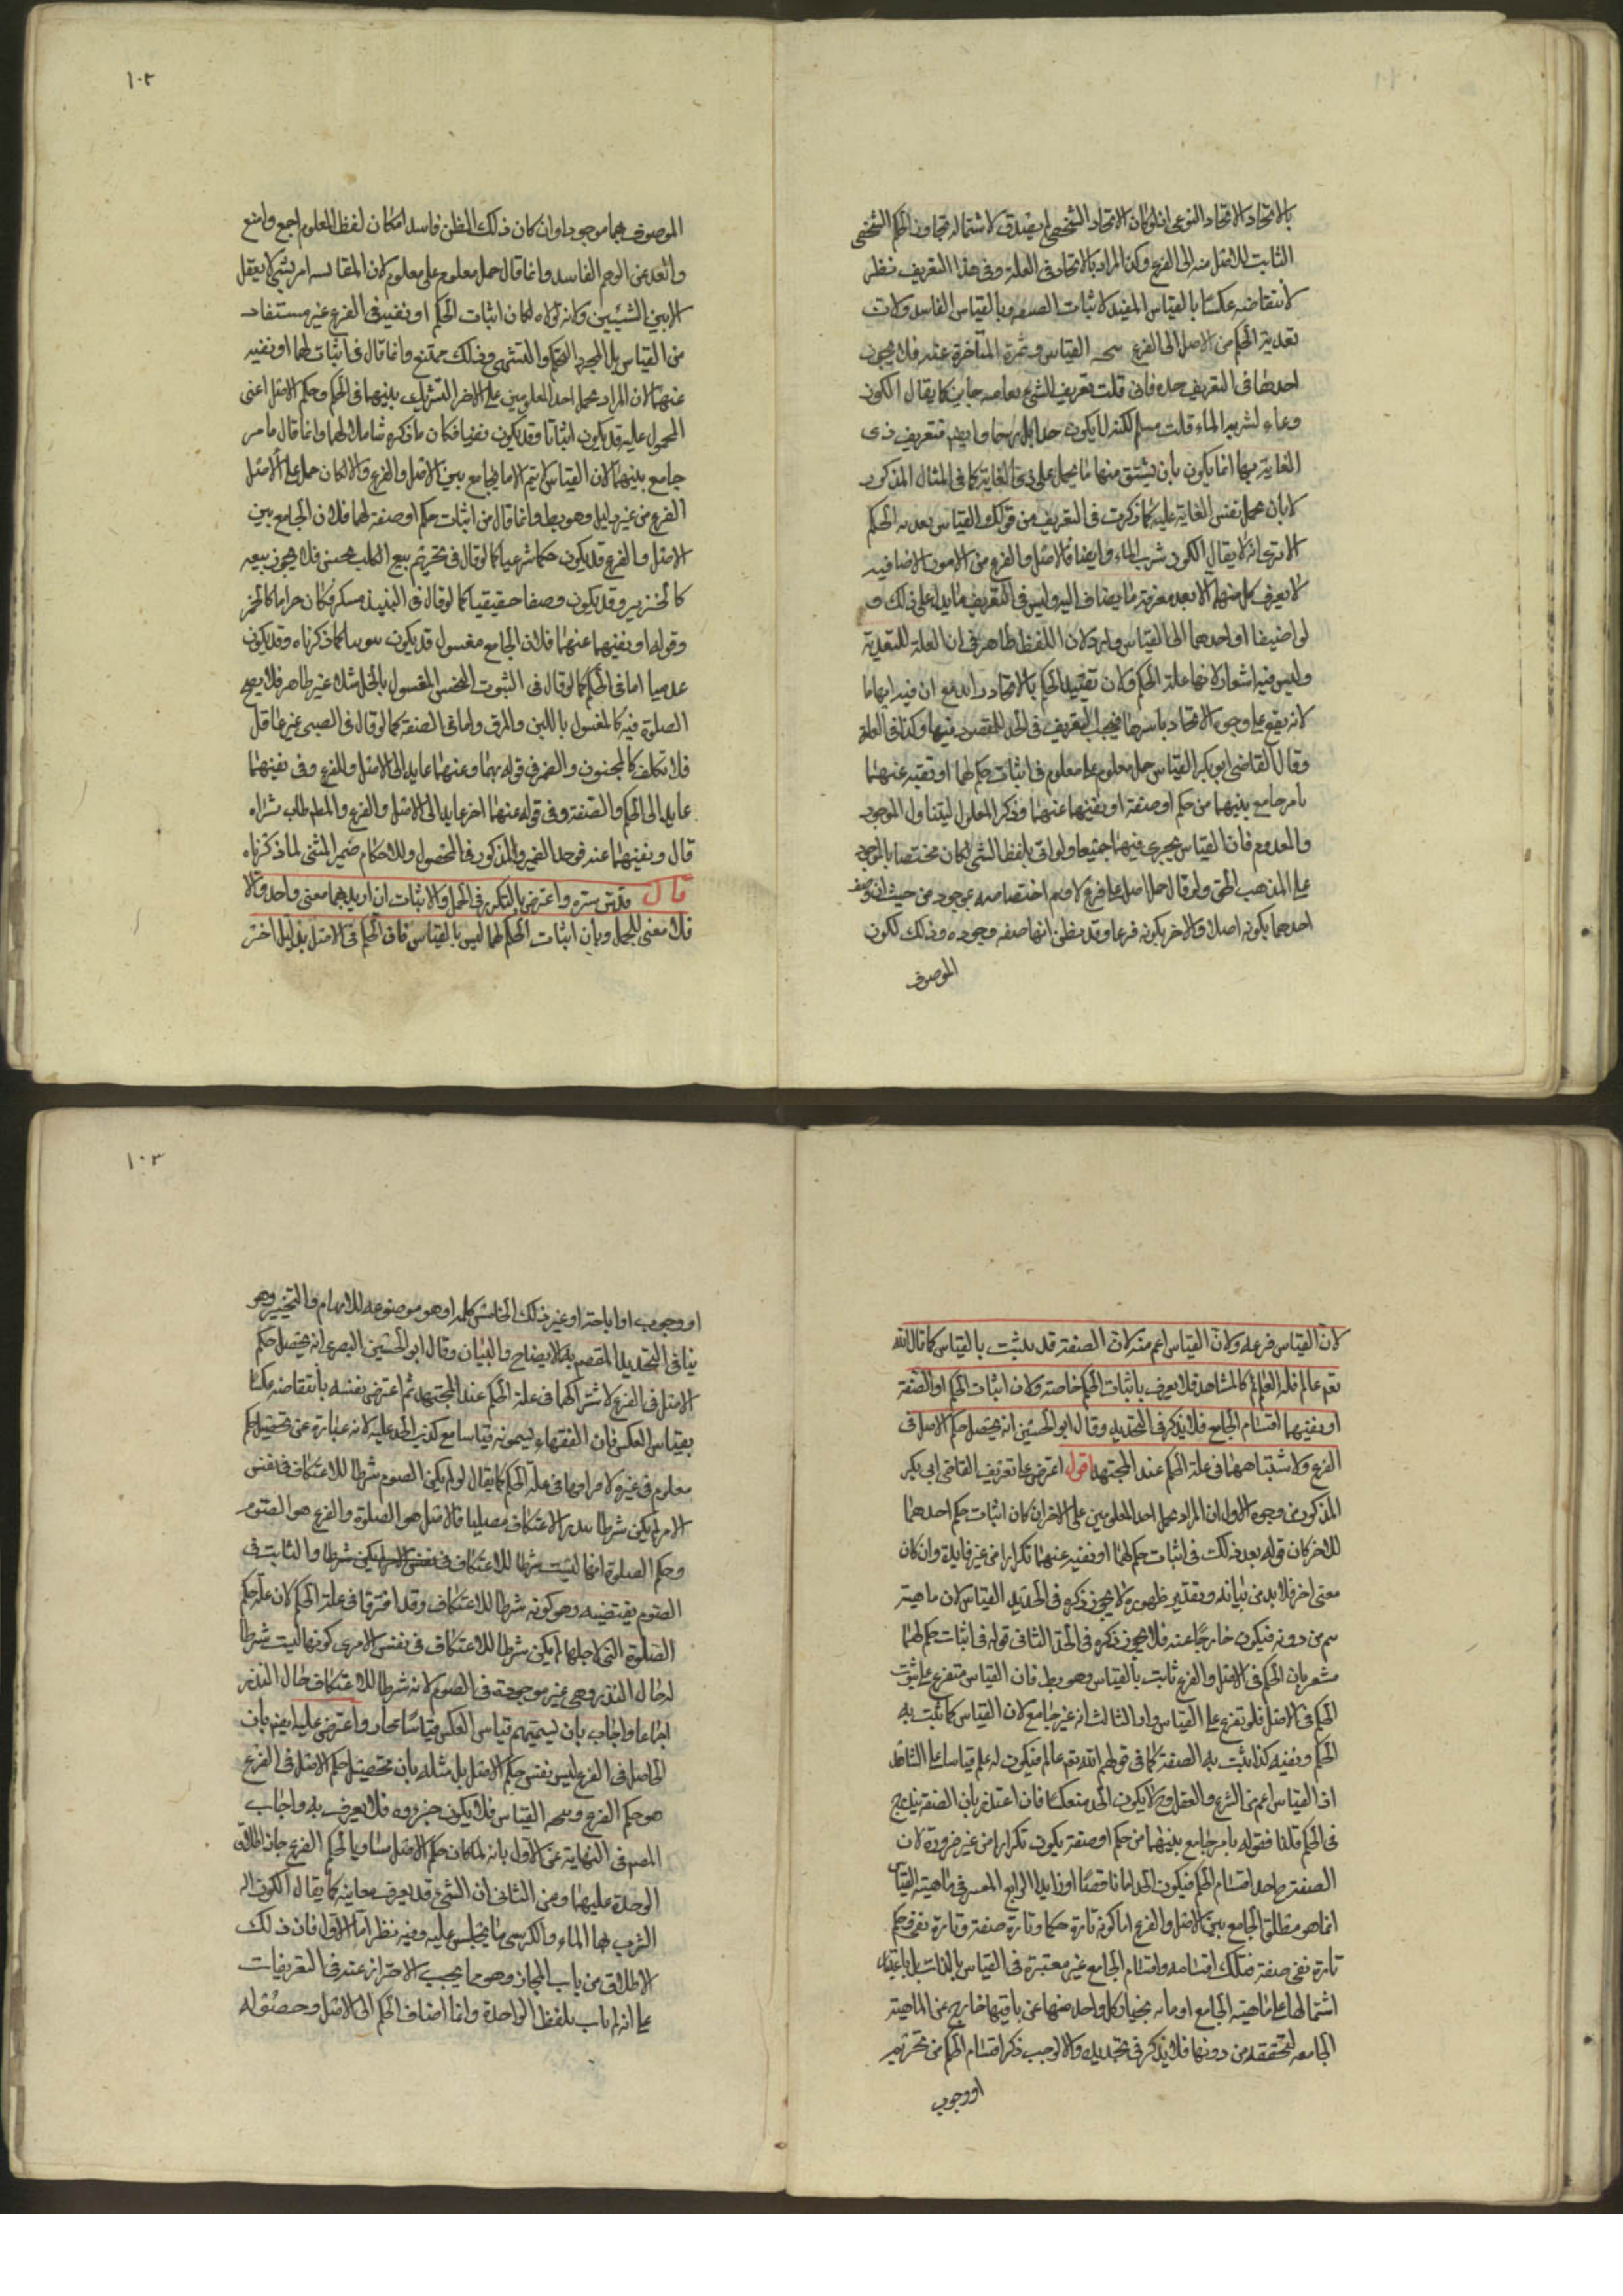 بالاتحاد الاتحاد النوعى اذ لو كان الاتحاد الشخصى لم يصدق لاشتماله تجاوز الحكم الشخصى
الثابت للاصل منه الى الفرع وكذا المراد بالاتحاد فى العلة وفى هذا التعريف نظر
لانتقاضه عكسا بالقياس المفيد لاثبات الصفة وبالقياس الفاسد ولان
تعدية الحكم من الاصل الى الفرع القياس وثمرة المتاخرة عنه فلا يجوز
اخذها فى التعريف حده فان قلت تعريف الشئ جايز كما يقال الكوز
وعاء لشرب الماء قلت مسلم لكنه لا يكون حدا بل رسما وايضم فتعريف ذى
الغاية بها انما يكون بان يشتق منها ما يحمل على ذى الغاية كما فى المثال المذكور
لا بان يحمل نفس الغاية عليه كما ذكرت فى التعريف من قولك القياس تعديه الحكم
الا ترى انه لا يقال الكوز شرب الماء وايضا فالاصل والفرع من الامور الاضافيه
لا يعرف كل منهما الا بعد معرفة ما يضاف اليه وليس فى التعريف ما يدل على ذلك و
لو اضيفا او احدهما الى القياس دار ولان اللفظ ظاهر فى ان العلة للتعدية
وليس فيه اشعار لانها علة الحكم ولان تقييد الحكم بالاتحاد مع ان فيه ابهاما
لانه يقع على وجوه الاتحاد باسرها فيجب التعريف فى الحد المقصود منها وكذا فى العلة
وقال القاضى ابو بكر القياس حمل معلوم على معلوم فى اثبات حكم لهما او نفيه عنهما
بامر جامع بينهما من حكم او صفة او نفيهما عنهما وذكر المعلوم ليتناول الموجود
والمعدوم فان القياس يجرى فيهما جميعا ولو اتى بلفظ الشئ لكان مختصا بالموجود
على المذهب الحق ولو قال حمل اصل على فرع لاوهم اختصاصه بموجود من حيث ان وصف
احدهما بكونه اصلا والاخر بكونه فرعا وقد يظن انها صفة وجوده وذلك لكون
الموصوف
١٠٢
الموصوف بهما موجودا وان كان ذلك الظن فاسدا فكان لفظ المعلوم اجمع وامنع
وابعد عن الوهم الفاسد وانما قال حمل معلوم على معلوم لان المقايسه امر نسبى لا يعقل
الا بين الشيئين ولانه لولاه لكان اثبات الحكم او نفيه فى الفرع غير مستفاد
من القياس بل المجرد التحكم والتشهى وذلك ممتنع وانما قال فى اثبات لهما او نفيه
عنهما لان المراد بحمل احد المعلومين على الاخر التشريك بينهما فى الحكم وحكم الاصل اعنى
المحمول عليه قد يكون اثباتا وقد يكون نفيا فكان ما ذكره شاملا لهما وانما قال بامر
جامع بينهما لان القياس لا يتم الا بالجامع بين الاصل والفرع والا لكان حمل على الاصل
الفرع من غير دليل وهو بط وانما قال من اثبات حكم او صفة لهما فلان الجامع بين
الاصل والفرع قد يكون حكما شرعيا كما لو قال فى تحريم بيع الكلب نجس فلا يجوز بيعه
كالخنزير وقد يكون وصفا حقيقيا كما لو قال فى النبيذ مسكر فكان حراما كالخمر
وقوله او نفيهما عنهما فلان الجامع مغسول قد يكون كما ذكرناه وقد يكون
عدميا اما فى الحكم كما لو قال فى الثوب النجس المغسول بالخل مثلا غير طاهر فلا يصح
الصلوة فيه كالمغسول باللبن والمرق واما فى الصفة كما لو قال فى الصبى غير عاقل
فلا تكلف كالمجنون والضمير فى قوله بهما وعنهما عايد الى الاصل والفرع وفى نفيهما
عايد الى الحكم والصفة وفى قوله عنهما اخر عايد الى الاصل والفرع والمط طاب ثراه
قال ونفيهما عنه فوحد الضمير والمذكور فى المحصول والاحكام ضمير المثنى لما ذكرناه
قال قدس سره واعترض بالتكرر فى الحمل والاثبات ان اريد بهما معنى واحد والا
فلا معنى للحمل وبان اثبات الحكم لهما ليس بالقياس فان الحكم فى الاصل بدليل اخر
لان القياس فرعه ولان القياس اعم منه لان الصفة قد تثبت بالقياس كما قال الله
تعم عالم فله العلم كالمشاهد فلا يعرف باثبات الحكم خاصة ولان اثبات الحكم او الصفة
او نفيهما اقسام الجامع فلا يذكر فى التحديد وقال ابو الحسين انه تحصيل حكم الاصل فى
الفرع لاشتباههما فى علة الحكم عند المجتهد اقول اعترض على تعريف القاضى ابى بكر
المذكور من وجوه الاول ان المراد بحمل احد المعلومين على الاخر ان كان اثبات حكم احدهما
للاخر كان قوله بعد ذلك فى اثبات حكم لهما او نفيه عنهما تكرارا من غير فايدة وان كان
معنى اخر فلا بد من بيانه وبتقدير ظهوره لا يجوز ذكره فى تحديد القياس لان ماهيته
تتم من دونه فيكون خارجا عنه فلا يجوز ذكره فى الحد الثانى قوله فى اثبات حكم لهما
مشعر بان الحكم فى الاصل والفرع ثابت بالقياس وهو بط فان القياس متفرع على ثبوت
الحكم فى الاصل فلو تفرع على القياس دار الثالث انه غير جامع لان القياس كما يثبت به
الحكم ونفيه كذا يثبت به الصفة كما فى قولهم الله تعم عالم فيكون له علم قياسا على الشاهد
اذ القياس اعم من الشرع والعقل وح لا يكون الحد منعكسا فان اعتذر بان الصفة تندرج
فى الحكم قلنا فقوله بامر جامع بينهما من حكم او صفة يكون تكرارا من غير ضرورة لان
الصفة احد اقسام الحكم فيكون الحد اما ناقصا او زايدا الرابع المعتبر فى ماهية القياس
انما هو مطلق الجامع بين الاصل والفرع اما كونه تارة حكما وتارة صفة وتارة نفى حكم
تارة نفى صفة فتلك اقسامه واقسام الجامع غير معتبرة فى القياس بالذات بل باعتبار
اشتمالها على ماهية الجامع وكل واحد منها عن باقيها خارج عن الماهية
الجامعه لتحققه من دونها فلا يذكر فى تحديده والا لوجب ذكر اقسام الحكم من تحريم
او وجوب
١٠٣
او وجوب او اباحة او غير ذلك الخامس كلمه او هو موضوعه للابهام والتخيير وهو
ينافى التحديد المقصود به الايضاح والبيان وقال ابو الحسين البصرى انه تحصيل حكم
الاصل فى الفرع لاشتراكهما فى علة الحكم عند المجتهد ثم اعترض نفسه بانتقاضه عكسا
بقياس العكس فان الفقهاء يسمونه قياسا مع كذب الحد عليه لانه عبارة عن تحصيل حكم
معلوم فى غيره لافتراقهما فى علة الحكم كما يقال لو لم يكن الصوم شرطا للاعتكاف فى نفس
الامر لم يكن شرطا بنذر الاعتكاف مصليا فالاصل هو الصلوة والفرع هو الصوم
وحكم الصلوة انها ليست شرطا للاعتكاف فى نفس الامر لم يكن شرطا والثابت فى
الصوم نقيضه وهو كونه شرطا للاعتكاف وقد افترقا فى علة الحكم لان علة حكم
الصلوة التى لاجلها لم يكن شرطا للاعتكاف فى نفس الامر هى كونها ليست شرطا
له حال النذر وهى غير موجودة فى الصوم لانه شرطا للاعتكاف حال النذر
اجماعا واجاب بان تسميتهم قياس العكس قياسا مجاز واعترض عليه ايضم بان
الحاصل فى الفرع ليس نفس حكم الاصل بل مثله بان تحصيل حكم الاصل فى الفرع
هو حكم الفرع القياس فلا يكون جزؤه فلا يعرف به واجاب
المصم فى النهاية عن الاول بانه لما كان حكم الاصل مساويا لحكم الفرع جاز اطلاق
الوحدة عليهما وعن الثانى ان الشئ قد يعرف كما يقال الكوز اله
الشرب بها الماء والكرسى ما يجلس عليه وفيه نظر اما الاول فان ذلك
الاطلاق من باب المجاز وهو مما يجب الاحتراز عنه فى التعريفات
على انه لم يات بلفظ الواحدة وانما اضاف الحكم الى الاصل وحصوله